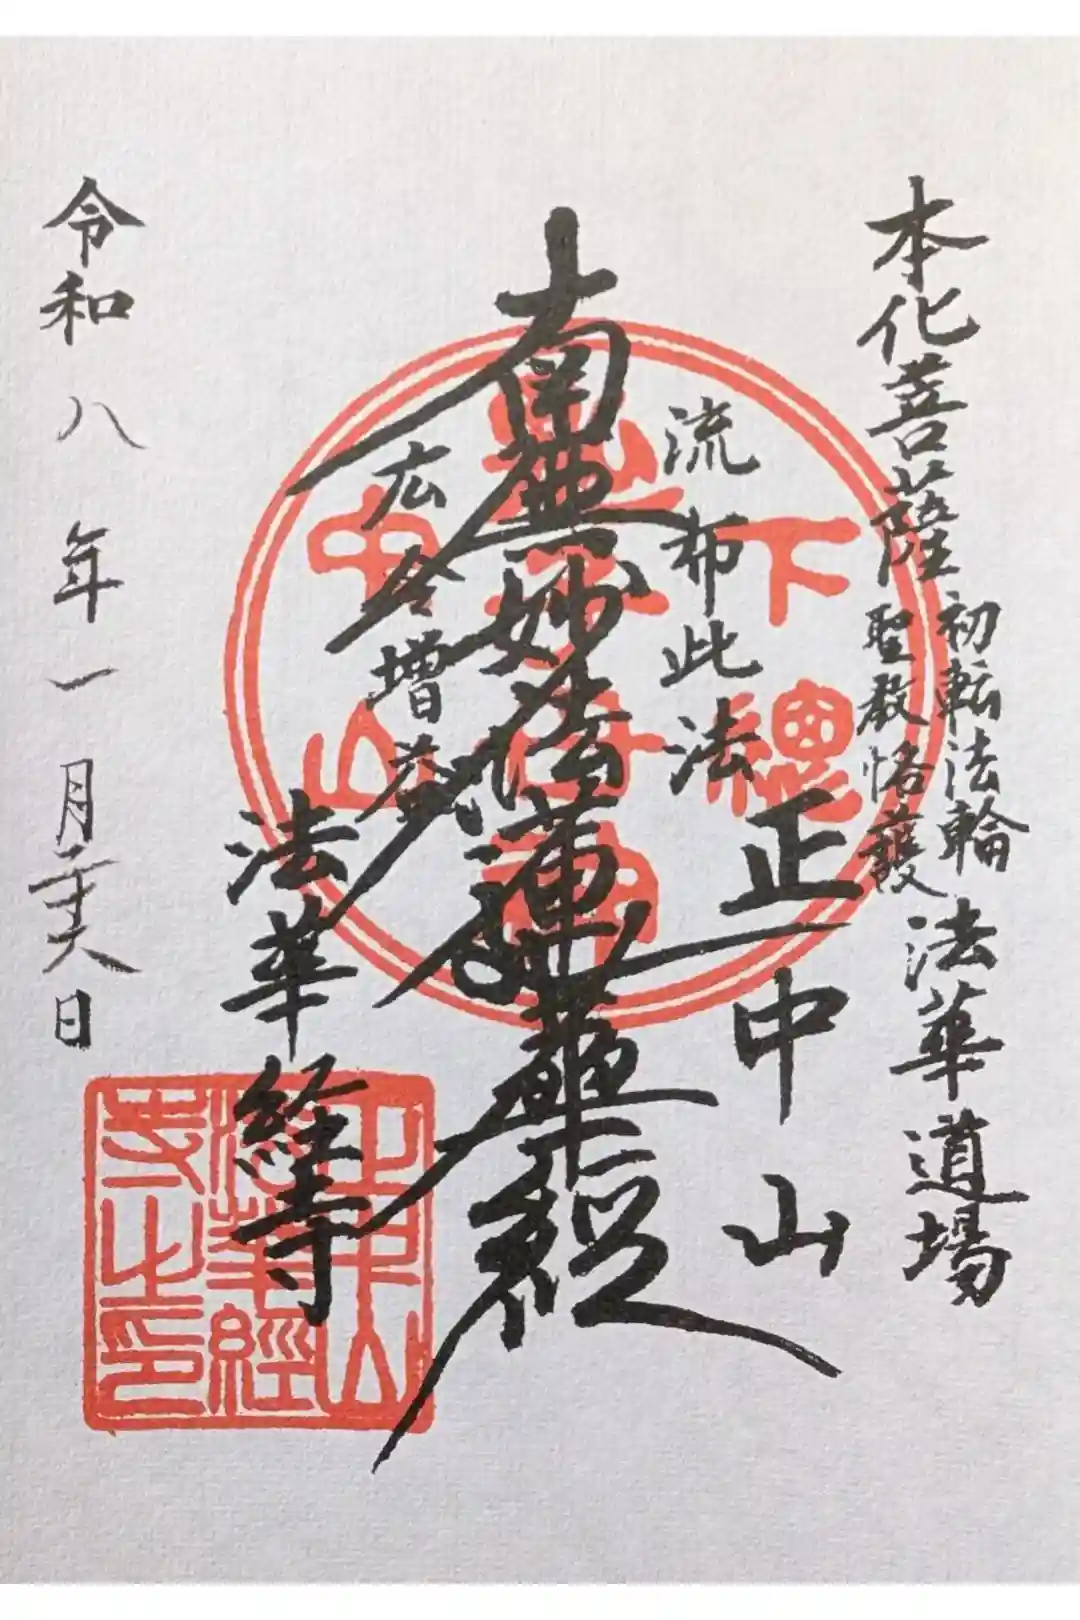 本化菩薩
初転法輪
聖教格護
法華道場
流布此法
正中山
南無妙法蓮華経
広令増益
法華経寺
令和八年一月二十六日
下總
中山
正中山
法華經
寺之印